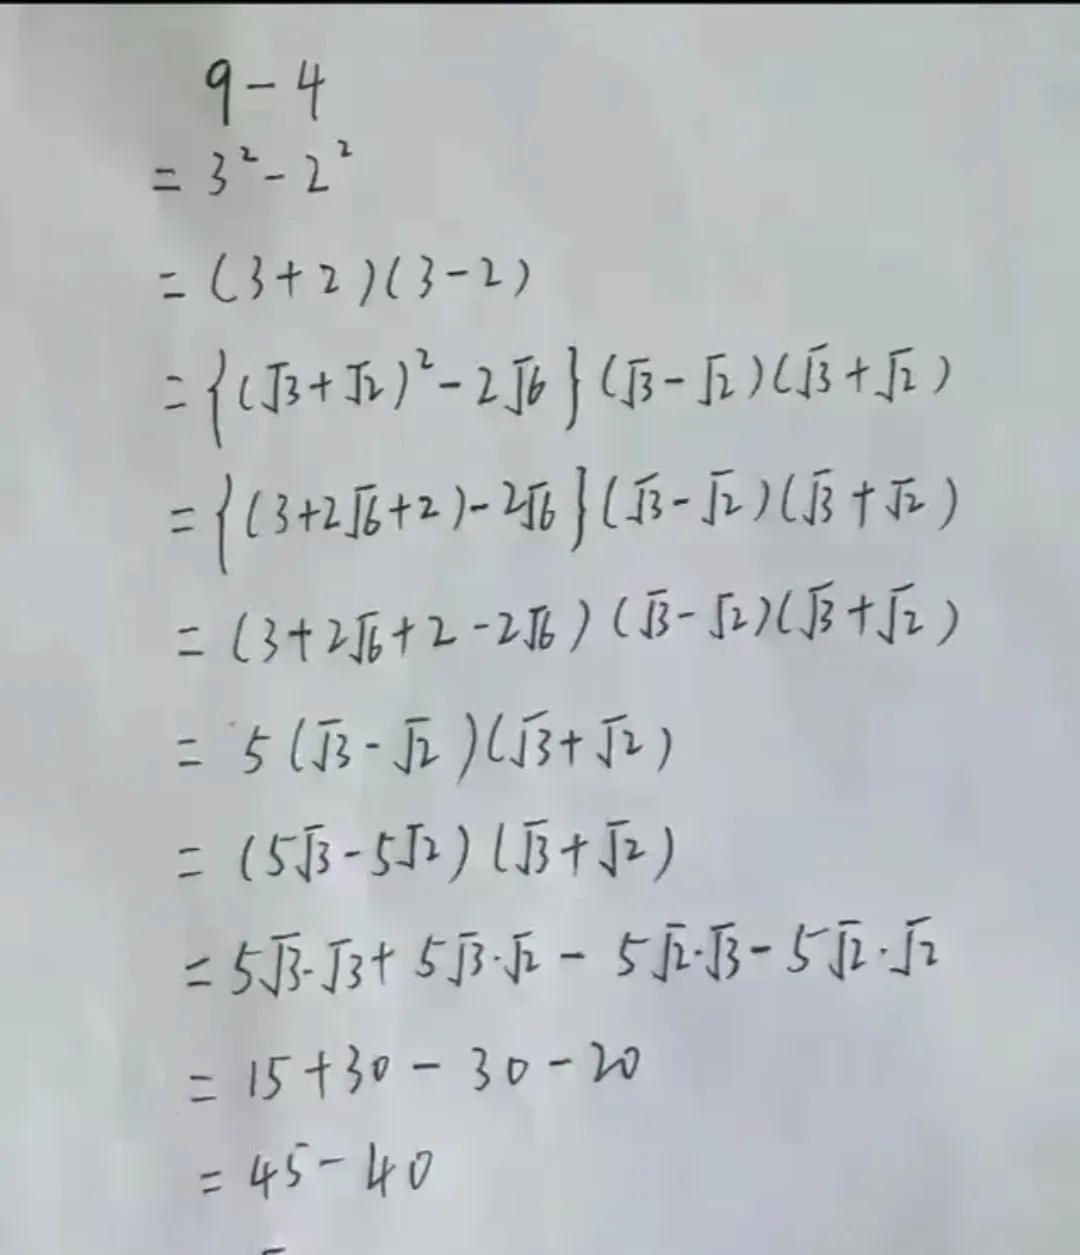 9-4
= 3²-2²
= (3+2)(3-2)
= {(√3+√2)²-2√6}(√3-√2)(√3+√2)
= {(3+2√6+2)-2√6}(√3-√2)(√3+√2)
= (3+2√6+2-2√6)(√3-√2)(√3+√2)
= 5(√3-√2)(√3+√2)
= (5√3-5√2)(√3+√2)
= 5√3·√3+5√3·√2-5√2·√3-5√2·√2
= 15+30-30-20
= 45-40